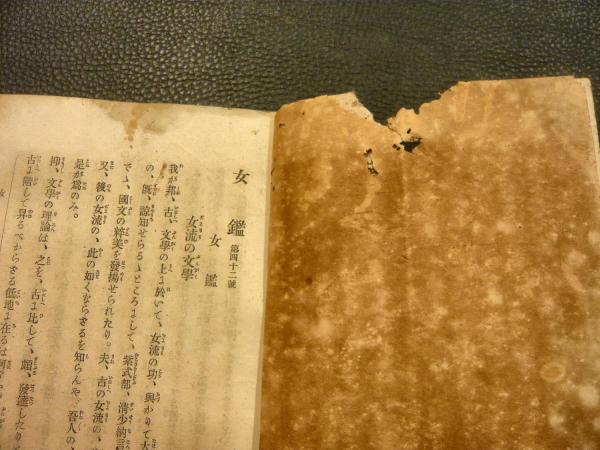 女鑑 第四十二號
女鑑
女流の文學
我が邦、古、文學の上に於いて、女流の功、與かりて大
の、既に諗知せらるゝところにして、紫式部、清少納言
でゝ、國文の粹美を發揚せられたり。夫、古の女流の、
又、後の女流の、此の如くならざるを知らんや、吾人の、
是が爲のみ。
抑、文學の理論は、之を、古に比して、頗、發達したり
古に階して昇るべからざる低地に在るは
女